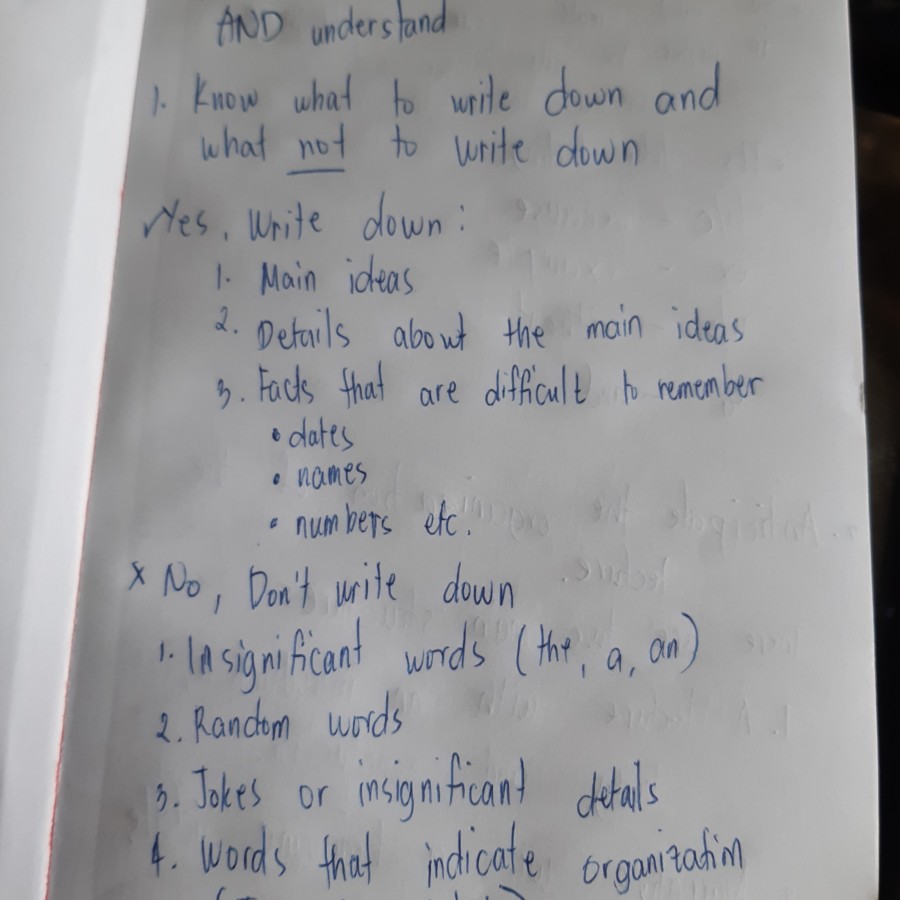 AND understand
1. Know what to write down and
what not to write down
✓Yes, Write down:
1. Main ideas
2. Details about the main ideas
3. Facts that are difficult to remember
• dates
• names
• numbers etc.
x No, Don't write down
1. Insignificant words (the, a, an)
2. Random words
3. Jokes or insignificant details
4. Words that indicate organization